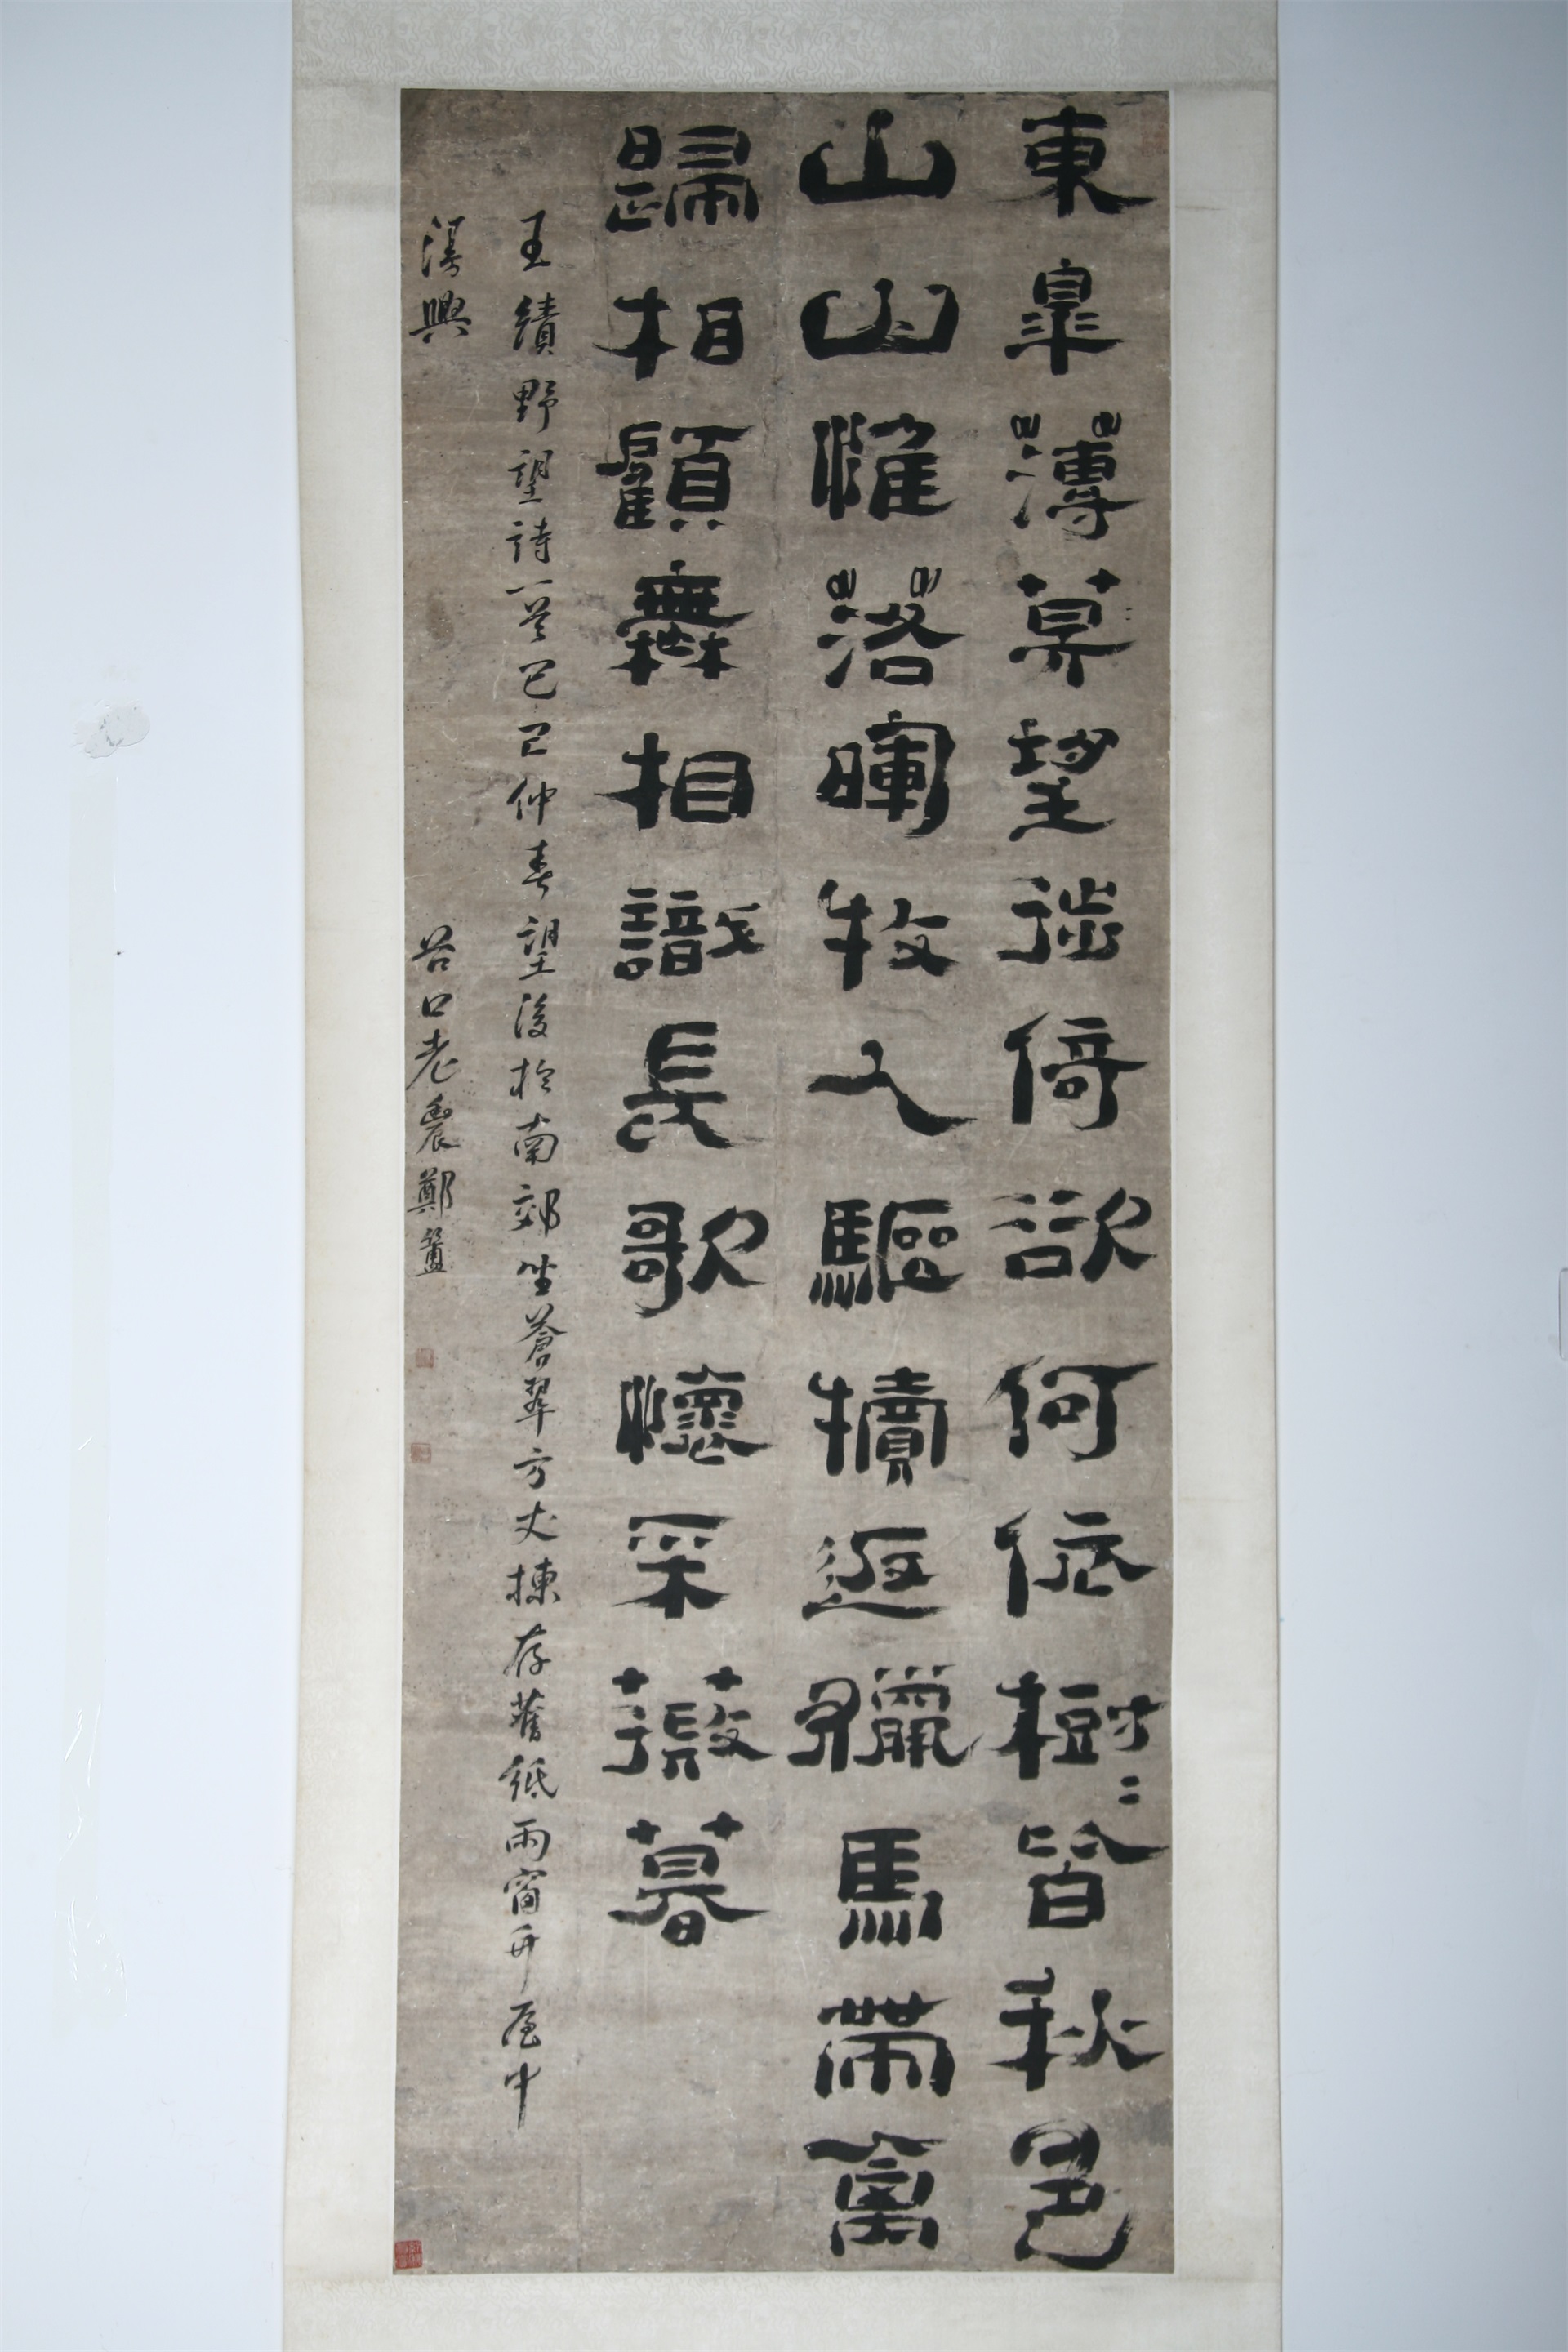 東皋薄暮望徙倚欲何依樹二皆秋色
山山惟落暉牧人驅犢返獵馬帶禽
歸相顧無相識長歌懷采薇暮
王績野望詩一首己巳仲春望後於南郊坐蒼翠方丈揀存舊紙雨窗弄
漫興
谷口老農鄭簠